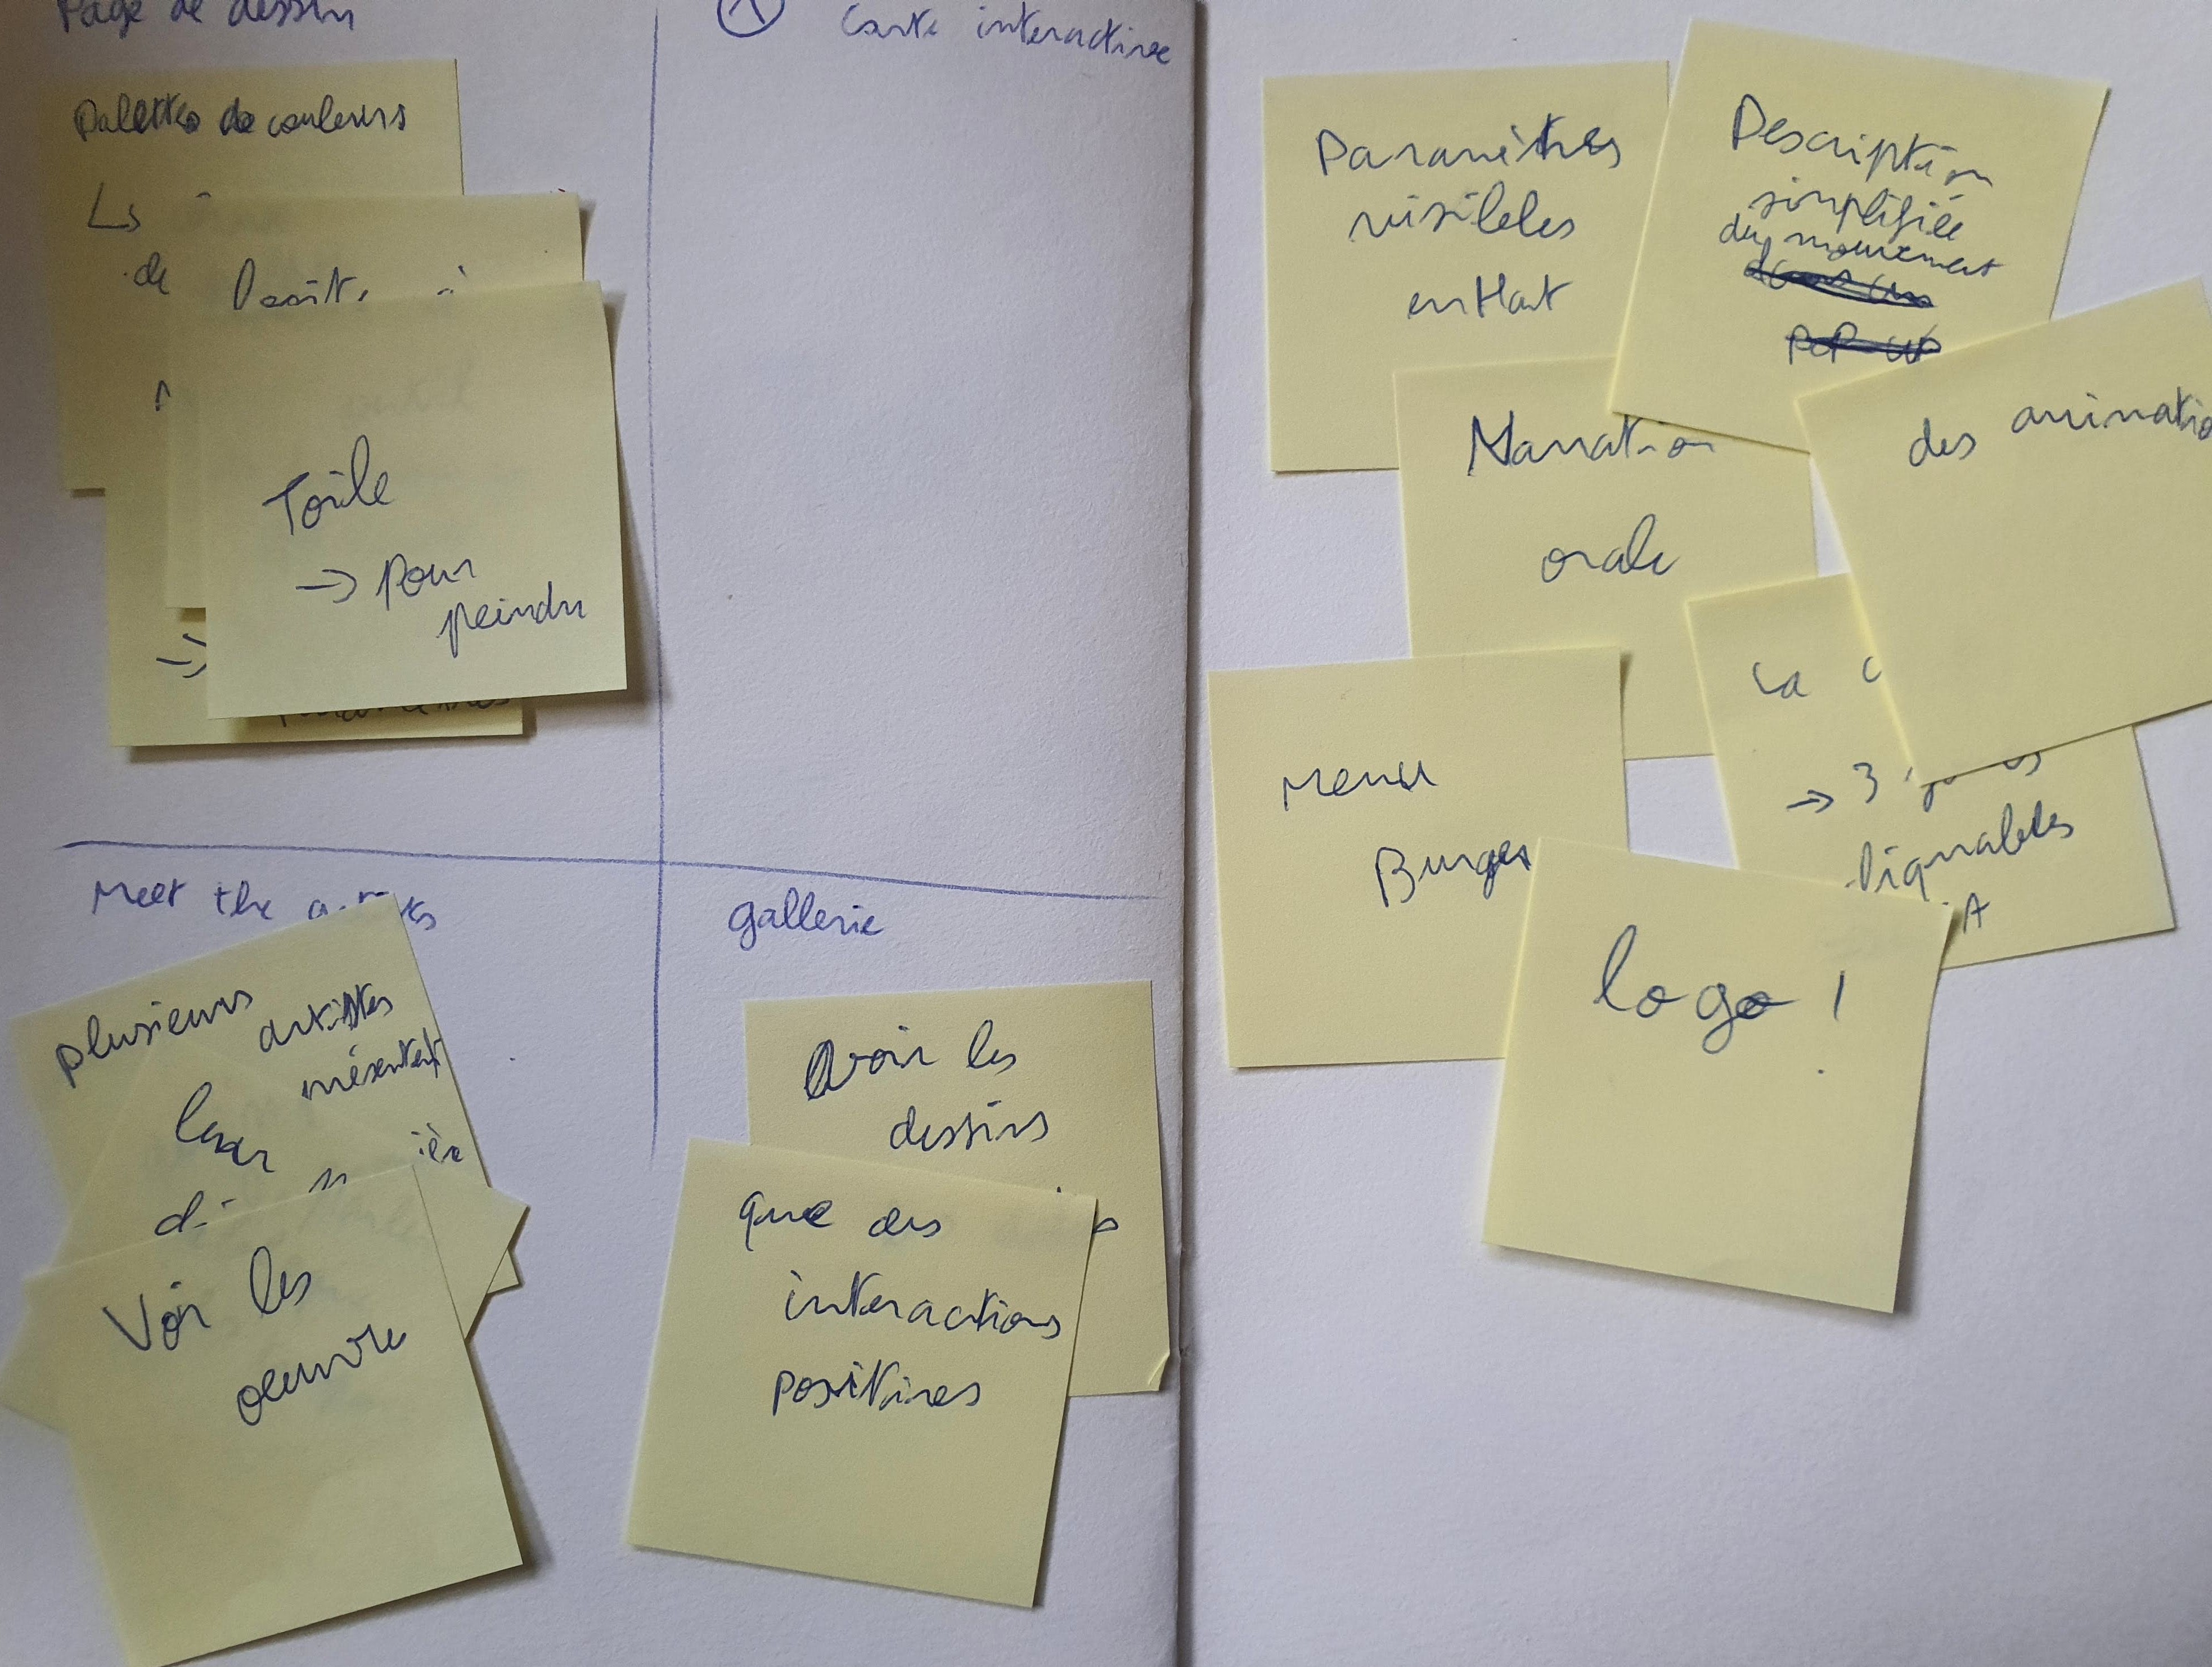 Page de dessin
Palettes de couleurs
Ls
de
Toile
→ pour
peindre
1 Carte interactive
Meet the
plusieurs
artistes
présentent
leur
Voir les
oeuvre
gallerie
Avoir les
dessins
que des
interactions
positives
Paramètres
visibles
en Haut
Description
simplifiée
du mouvement
dans un
POP-UP
des animatio
Narration
orale
La c
→ 3
lignables
A
Menu
Burger
logo !